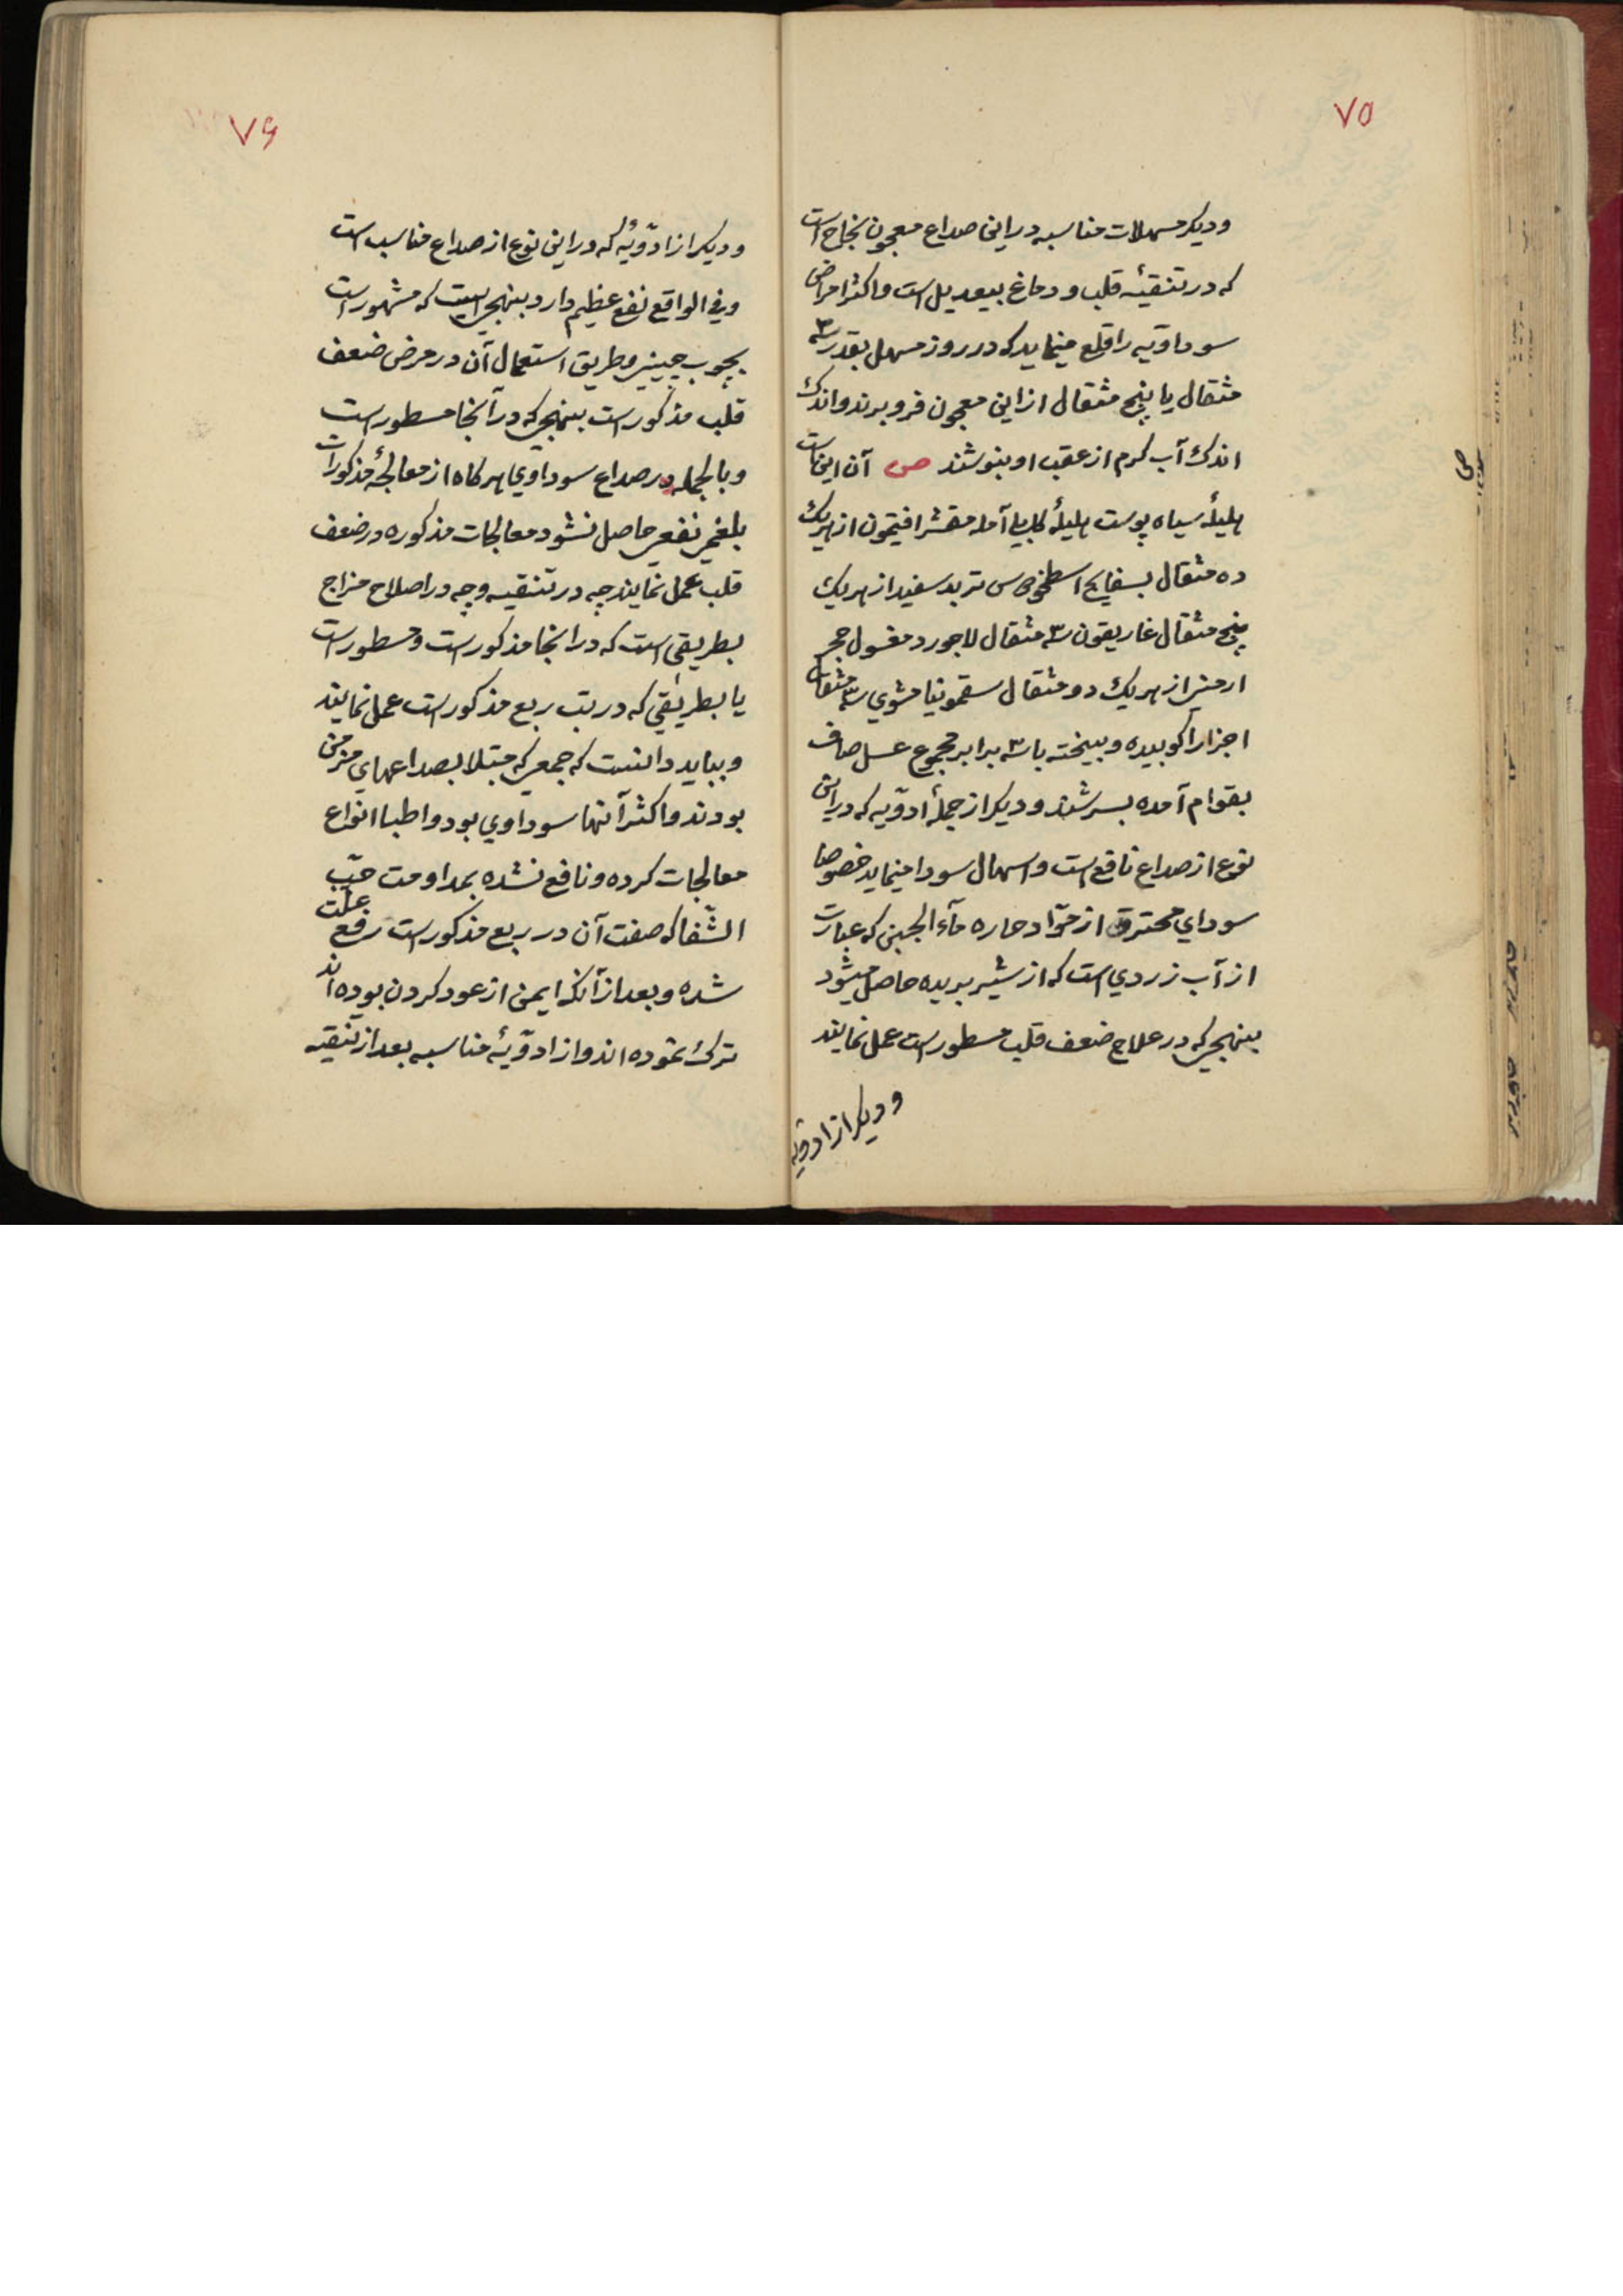 ۷۵
ودیکر مسهلات مناسبه در این صداع معجون نجاح است
که در تنقیهٔ قلب و دماغ بیعدیل است و اکثر امراض
سوداویّه را قلع مینماید که در روز مسهل بقدر سه
مثقال یا پنج مثقال از این معجون فرو برند و اندک
اندک آب کرم از عقب او بنوشند ص آن این است
هلیلهٔ سیاه پوست هلیلهٔ کابلی آمله مقشر افتیمون از هریک
ده مثقال بسفایج اسطخودوس تربد سفید از هریک
پنج مثقال غاریقون سه مثقال لاجورد مغسول حجر
ارمنی از هریک دو مثقال سقمونیا مشوی سه مثقال
اجزا را کوبیده و بیخته با سه برابر مجموع عسل صاف
بقوام آمده بسرشند و دیکر از جملهٔ ادوّیه که در این
نوع از صداع نافع است و اسهال سودا مینماید خصوصا
سودای محترق از موّاد حاره مآء الجبن که عبارت
از آب زردی است که از شیر بریده حاصل میشود
بنهجی که در علاج ضعف قلب مسطور است عمل نمایند
و دیکر از ادوّیه
۷۶
و دیکر از ادوّیهٔ که در این نوع از صداع مناسب است
و فی الواقع نفع عظیم دارد بنهجی است که مشهور است
بچوب چینی و طریق استعمال آن در مرض ضعف
قلب مذکور است بنهجی که در آنجا مسطور است
و بالجمله در صداع سوداوی هرکاه از معالجهٔ مذکورات
بلغمی نفعی حاصل نشود معالجات مذکوره در ضعف
قلب عمل نمایند چه در تنقیه و چه در اصلاح مزاج
بطریقی است که در انجا مذکور است و مسطور است
یا بطریقی که در تب ربع مذکور است عمل نمایند
و بباید دانست که جمعی که مبتلا بصداعهای مزمن
بودند و اکثر آنها سوداوی بود و اطبا انواع
معالجات کرده و نافع نشده بمداومت حبّ
الشّفا که صفت آن در ربع مذکور است رفع علّت
شده و بعد از آنکه ایمن از عود کردن بوده اند
ترک نموده اند و از ادوّیهٔ مناسبه بعد از تنقیه